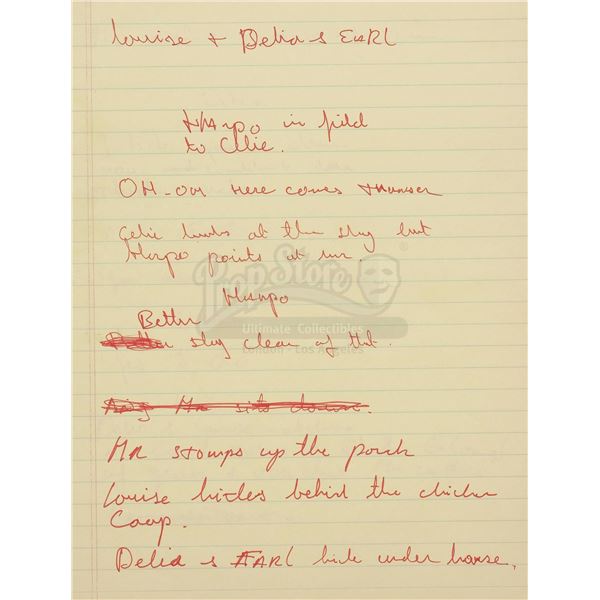 Louise + Delia & EARL
HARpo in field
to Celie.
OH-OH Here comes thunder
Celie looks at the sky but
Harpo points at Mr.
Harpo
Better
stay clear of that.
Mr sits down.
MR stomps up the porch
Louise hides behind the chicken
Coop.
Delia & EARL hide under house.
Prop Store
Ultimate Collectibles
London - Los Angeles